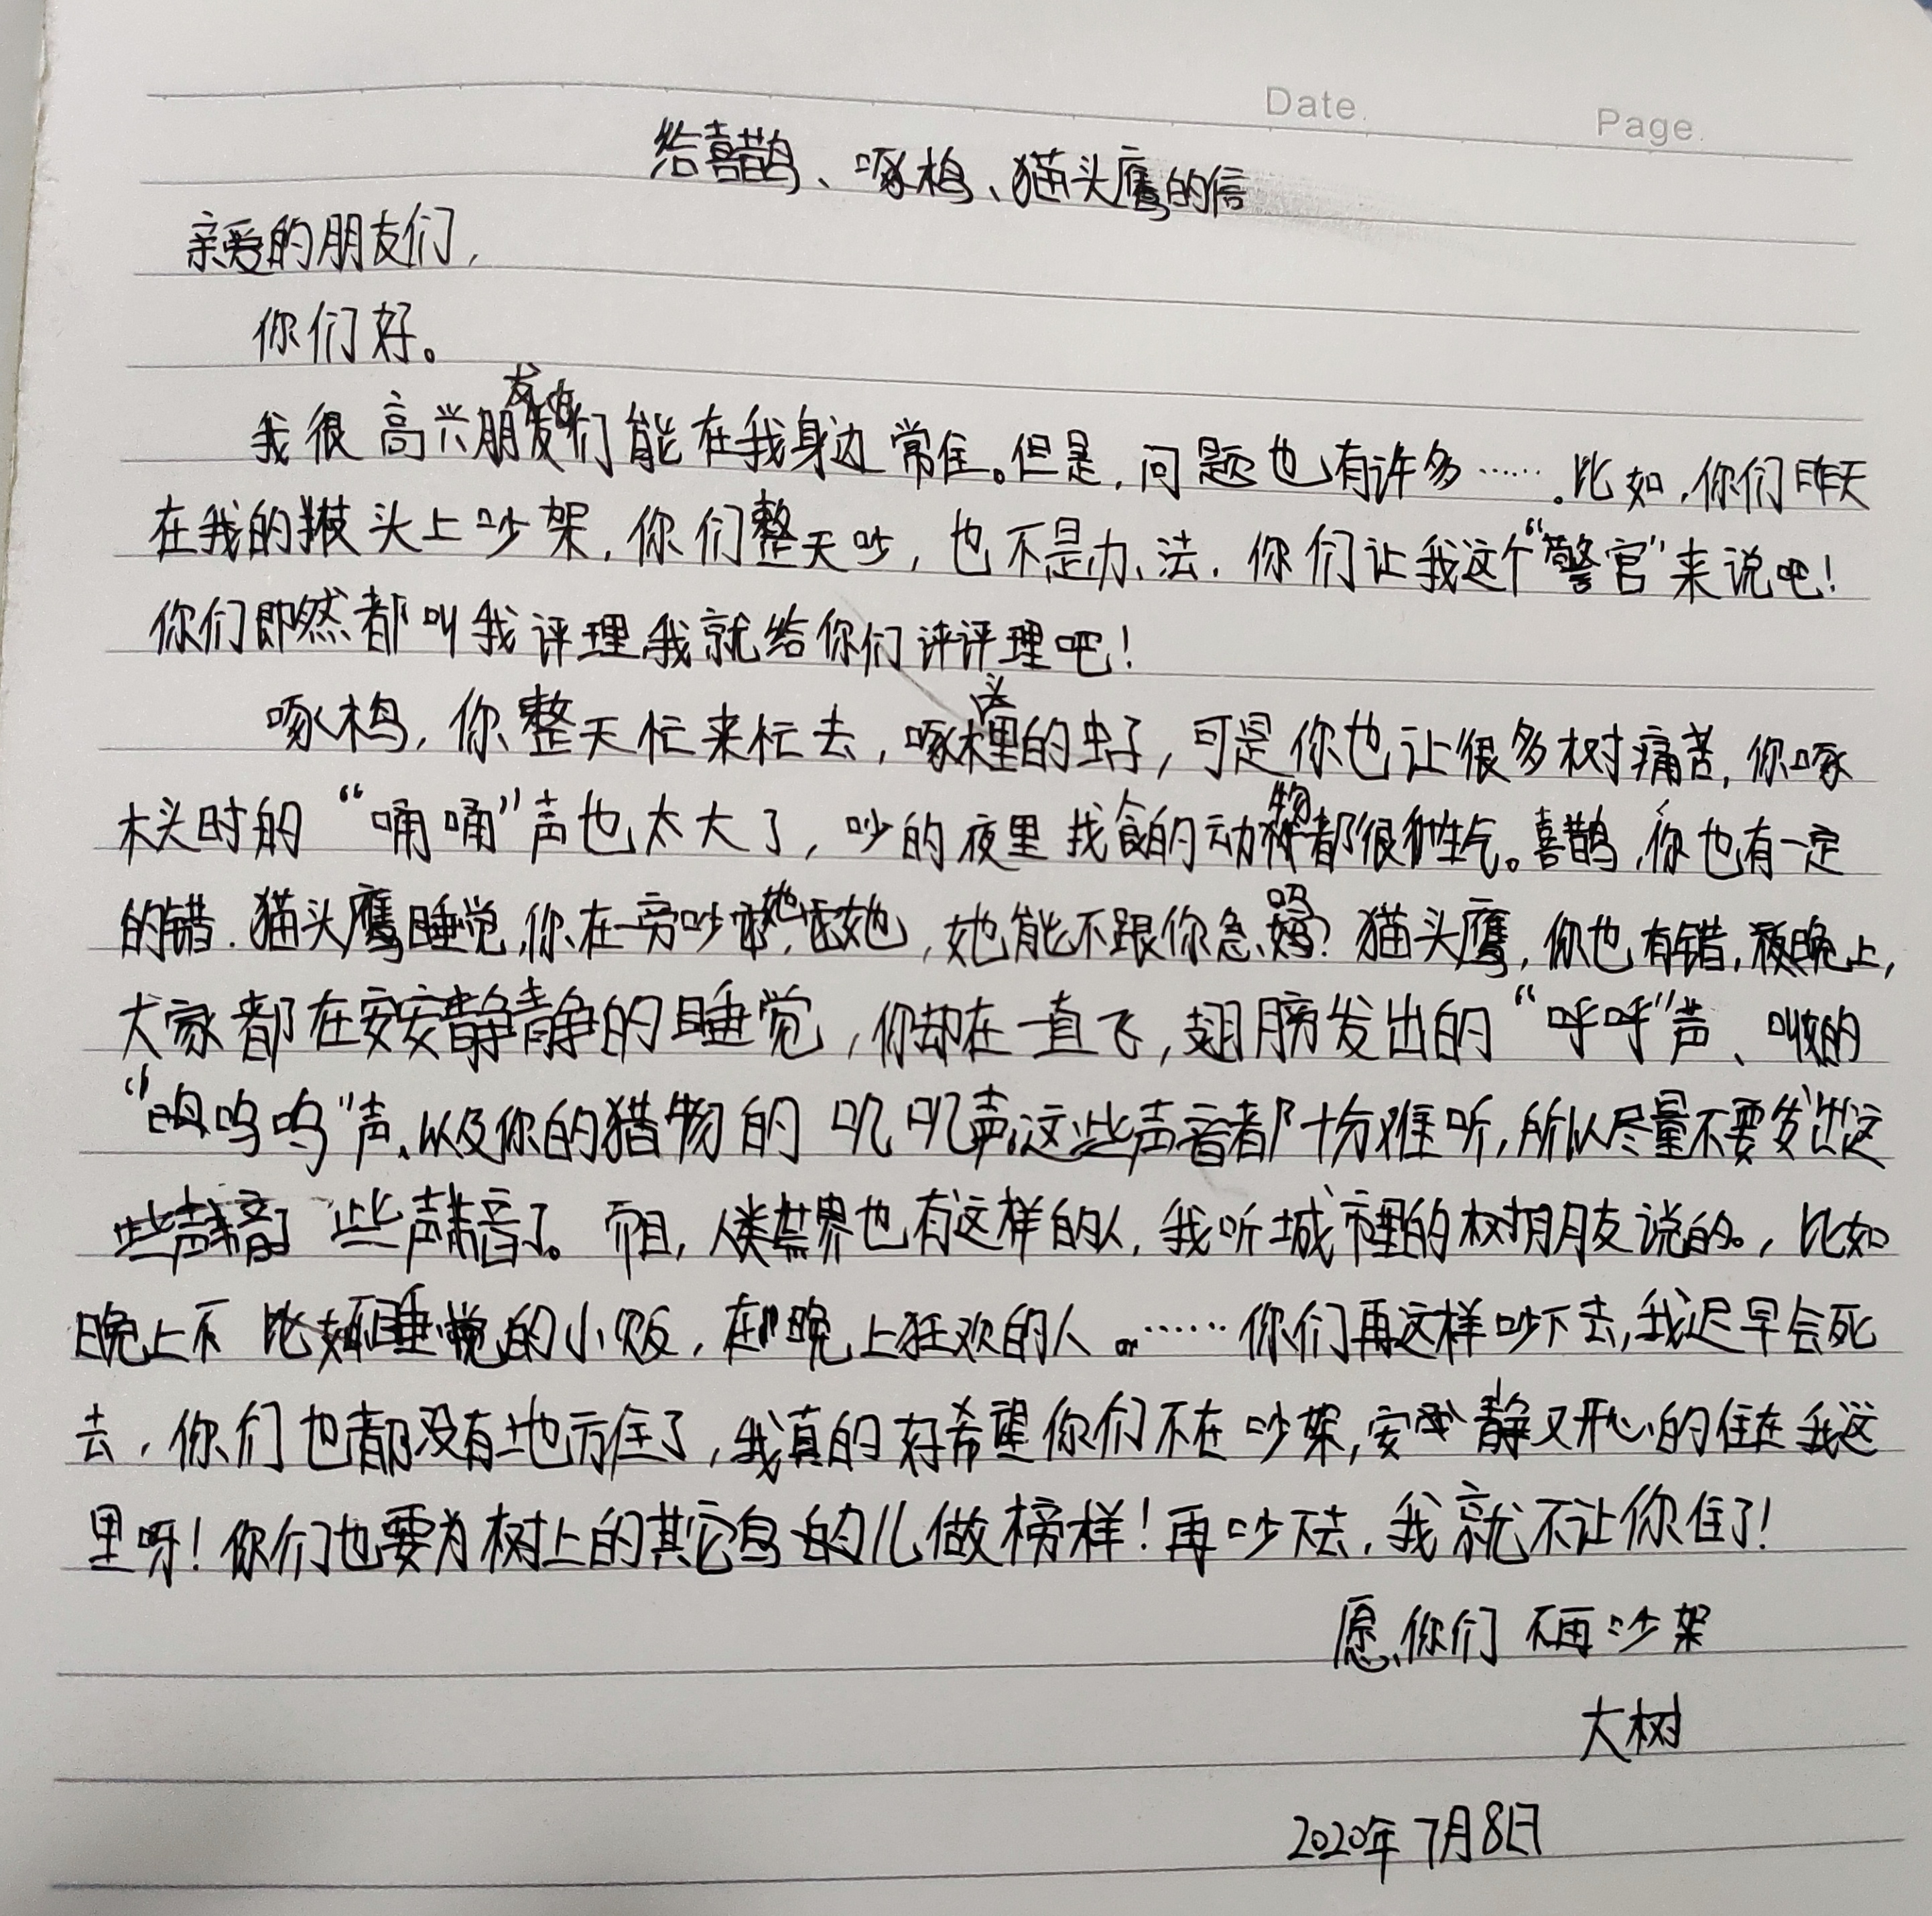 Date.
Page.
给喜鹊、啄木鸟、猫头鹰的信
亲爱的朋友们,
你们好。
我很高兴朋友们能在我身边常住。但是,问题也有许多……。比如,你们昨天
在我的枝头上吵架,你们整天吵,也不是办法.你们让我这个“警官”来说吧!
你们即然都叫我评理,我就给你们评评理吧!
啄木鸟,你整天忙来忙去,啄木里的虫子,可是你也让很多树痛苦,你啄
木头时的“嗵嗵”声也太大了,吵的夜里找食的动物都很生气。喜鹊,你也有一定
的错.猫头鹰睡觉,你在一旁吵她,她能不跟你急吗?猫头鹰,你也有错,夜晚上,
大家都在安安静静的睡觉,你却在一直飞,翅膀发出的“呼呼”声、叫的
“呜呜呜”声、以及你的猎物的叽叽声,这些声音都十分难听,所以尽量不要发出这
些声音了。而且,人类世界也有这样的人,我听城市里的树朋友说的。,比如
晚上不睡觉的小贩,在晚上狂欢的人……你们再这样吵下去,我迟早会死
去,你们也都没有地方住了,我真的好希望你们不在吵架,安静又开心的住在我这
里呀!你们也要为树上的其它鸟的儿做榜样!再吵下去,我就不让你住了!
愿你们不再吵架
大树
2020年7月8日